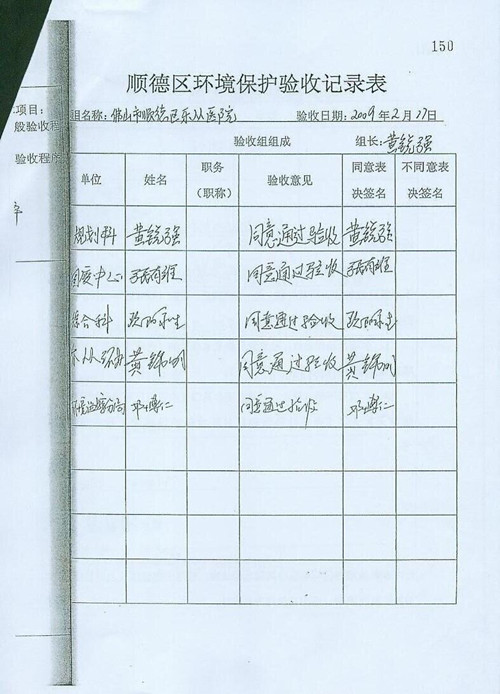 150
顺德区环境保护验收记录表
项目：
般验收程
验收程序
组名称：佛山市顺德区乐从医院 验收日期：2009年2月17日
验收组组成 组长：黄锐强
单位 姓名 职务（职称） 验收意见 同意表决签名 不同意表决签名
规划科 黄锐强 同意通过验收 黄锐强
中心 同意通过验收
综合科 同意通过验收
乐从环 黄锦明 同意通过验收 黄锦明
环境运输分局 邓 仁 同意通过验收 邓 仁